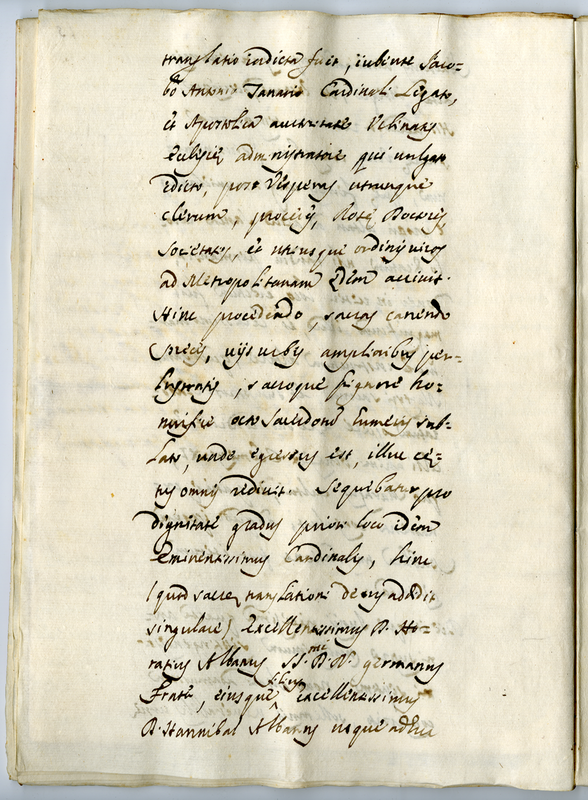 translatio indicta fuit, iubente Iaco=
bo Antonio Tanario Cardinali Legato,
et Apostolica auctoritate Urbinatis
Ecclesię administratore qui vulgato
edicto, post Vesperas utrumque
clerum, proceres, Rotę Doctores
Societates, et utriusque ordinis viros
ad Metropolitanam Ędem accivit.
Hinc procedendo, sacras canendo
preces, viis urbis amplioribus per=
lustratis, sacroque pignore ho=
norifice octo sacerdotum humeris sub=
lato, unde egressus est, illuc cę=
tus omnis redivit. Sequebatur pro
dignitate gradus priori loco idem
Eminentissimus Cardinalis, hinc
(quod sacrę translationi decus addidit
singulare) Excellentissimus D. Ho=
ratius Albanus SS.mi D. N. germanus
Frater, eiusque filius Excellentissimus
D. Hannibal Albanus usque adhuc